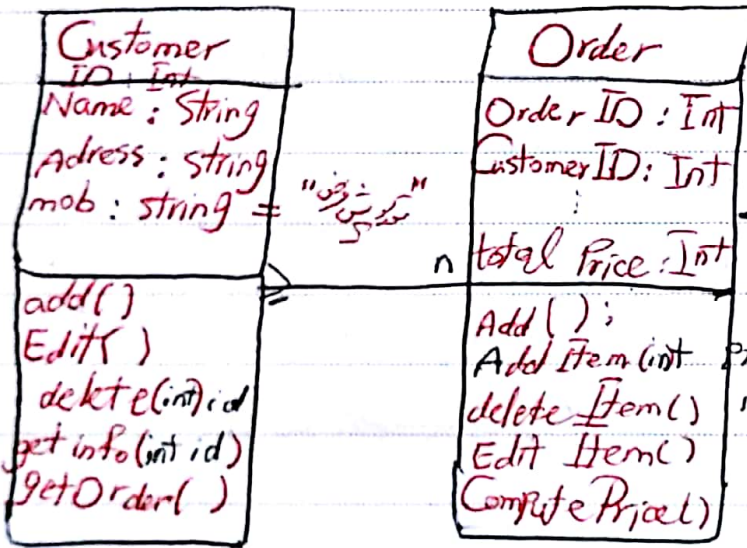 Customer
ID : Int
Name : String
Adress : string
mob : string = " "
add( )
Edit( )
delete(int) id
get info(int id)
getOrder( )
n
Order
Order ID : Int
Customer ID : Int
⋮
total Price : Int
Add( ) ;
Add Item (int
delete Item( )
Edit Item( )
Compute Price( )